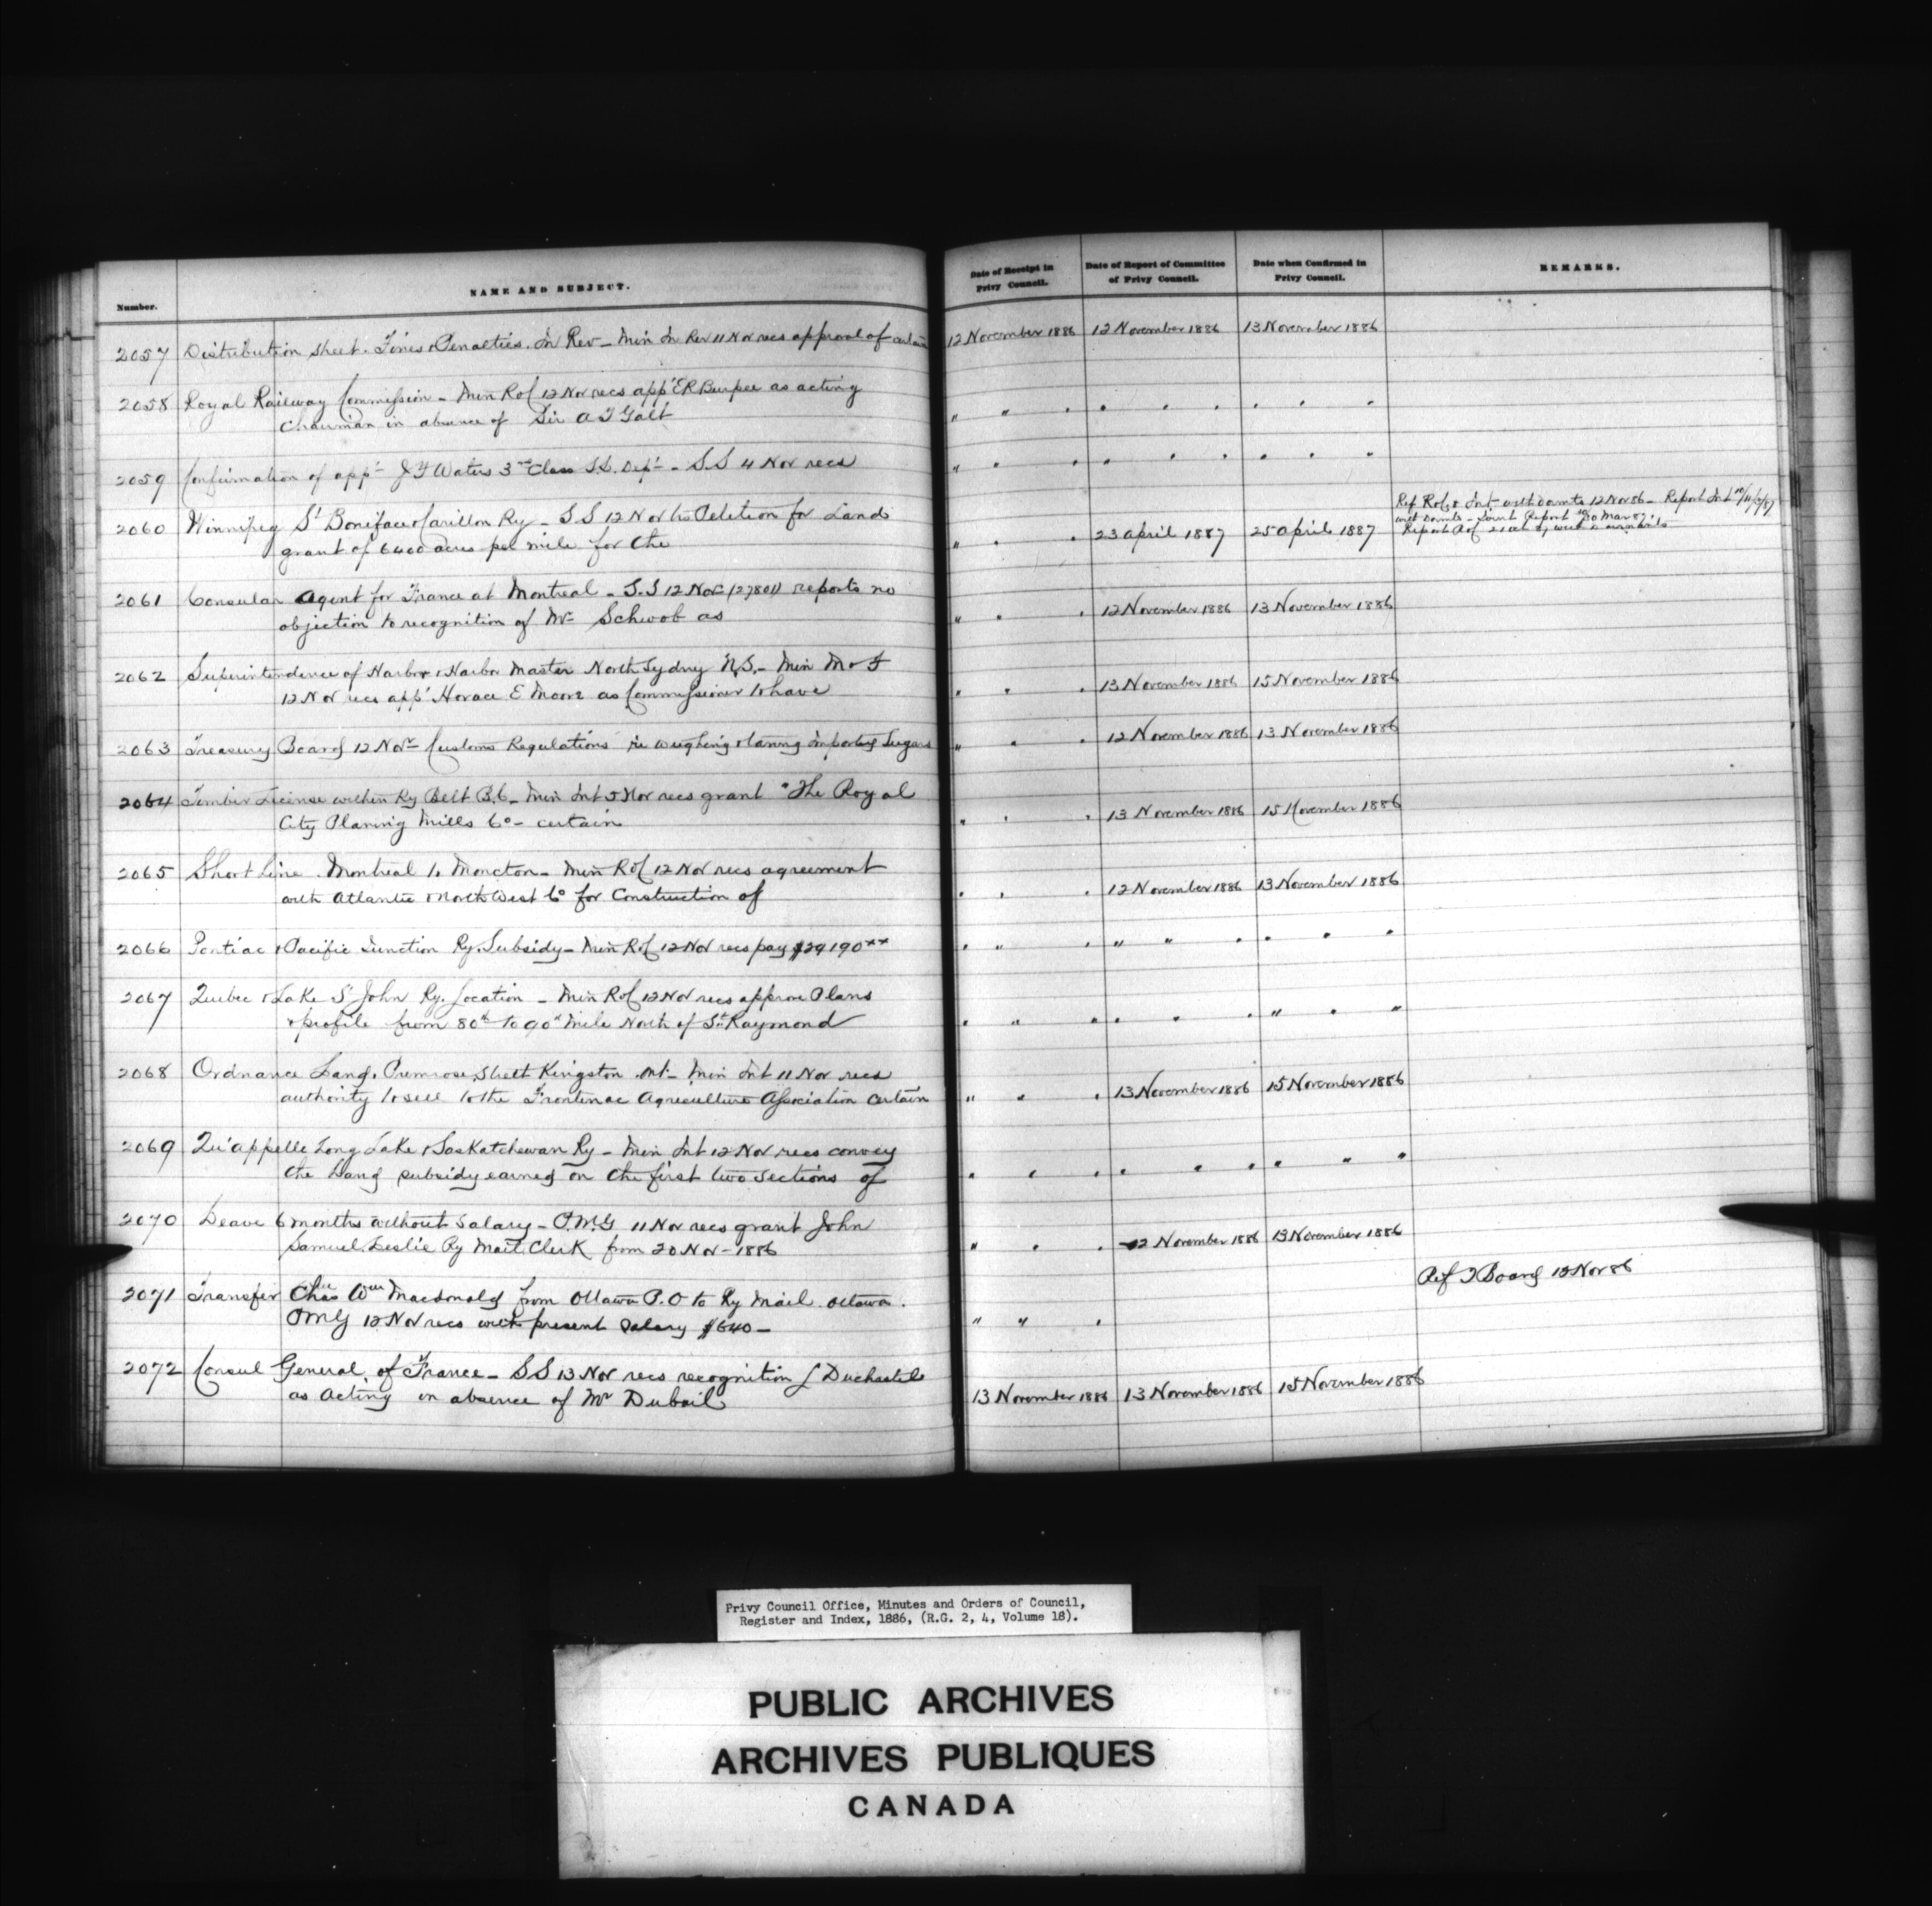 Number.
NAME AND SUBJECT.
Date of Receipt in
Privy Council.
Date of Report of Committee
of Privy Council.
Date when Confirmed in
Privy Council.
REMARKS.
2057 Distribution sheet. Fines & Penalties. In Rev - Min In Rev 11 Nov recs approval of certain 12 November 1886 12 November 1886 13 November 1886
2058 Royal Railway Commission - Min RofC 12 Nov recs appt E R Burpee as acting
Chairman in absence of Sir A T Galt " " " " " " " " "
2059 Confirmation of appt J F Waters 3rd Class S.S. Dept - S.S 4 Nov recs " " " " " " " " "
2060 Winnipeg St Boniface & Carillon Ry - S S 12 Nov trs Petition for Land
grant of 6400 acres per mile for the " " " 23 April 1887 25 April 1887
Ref RofC & Int with Docmts 12 Nov 86 - Report Int
with Docmts - Joint Report 30 Mar 87.
2061 Consular Agent for France at Montreal - S.S 12 Nov (27801) reports no
objection to recognition of Mr Schwob as " " " 12 November 1886 13 November 1886
2062 Superintendence of Harbor & Harbor Master North Sydney N.S. - Min M & F
12 Nov recs appt Horace E Moore as Commissioner to have " " " 13 November 1886 15 November 1886
2063 Treasury Board 12 Nov - Customs Regulations re weighing & taring importing Sugars " " " 12 November 1886 13 November 1886
2064 Timber License within Ry Belt B.C - Min Int 5 Nov recs grant "The Royal
City Planing Mills Co - certain " " " 13 November 1886 15 November 1886
2065 Short Line Montreal to Moncton - Min RofC 12 Nov recs agreement
with Atlantic & North West Co for Construction of " " " 12 November 1886 13 November 1886
2066 Pontiac & Pacific Junction Ry. Subsidy - Min RofC 12 Nov recs pay $29190xx " " " " " " " " "
2067 Quebec & Lake St John Ry. Location - Min RofC 12 Nov recs approve Plans
& profile from 80th to 90th mile North of St Raymond " " " " " " " " "
2068 Ordnance Land. Primrose Street Kingston Ont - Min Int 11 Nov recs
authority to sell to the Frontenac Agriculture Association certain " " " 13 November 1886 15 November 1886
2069 Qu'appelle Long Lake & Saskatchewan Ry - Min Int 12 Nov recs convey
the Land subsidy earned on the first two sections of " " " " " " " " "
2070 Leave 6 months without salary - P.M.G 11 Nov recs grant John
Samuel Leslie Ry Mail Clerk from 20 Nov - 1886 " " " 12 November 1886 13 November 1886
2071 Transfer Chas Wm Macdonald from Ottawa P.O to Ry Mail Ottawa.
PMG 12 Nov recs with present salary $640 - " " "
Ref T Board 13 Nov 86
2072 Consul General of France - S S 13 Nov recs recognition C Duchastel
as Acting in absence of Mr Dubail 13 November 1886 13 November 1886 15 November 1886
Privy Council Office, Minutes and Orders of Council,
Register and Index, 1886, (R.G. 2, 4, Volume 18).
PUBLIC ARCHIVES
ARCHIVES PUBLIQUES
CANADA